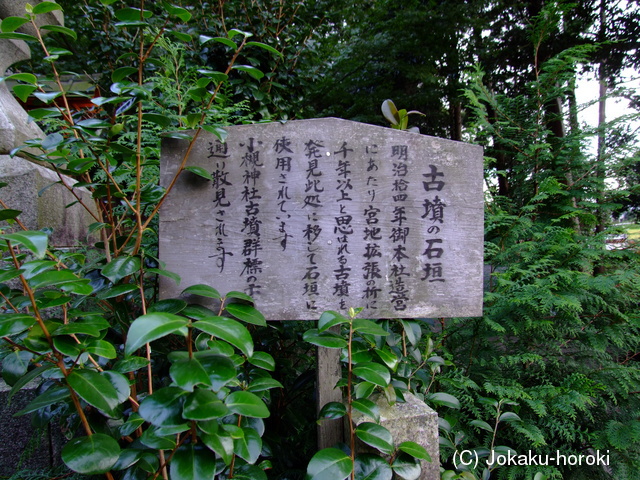 古墳の石垣
明治拾四年御本社造営
にあたり宮地拡張の折に
千年以上と思はれる古墳を
発見此処に移して石垣に
使用されています
小槻神社古墳群標の
通り散見されます
(C) Jokaku-horoki